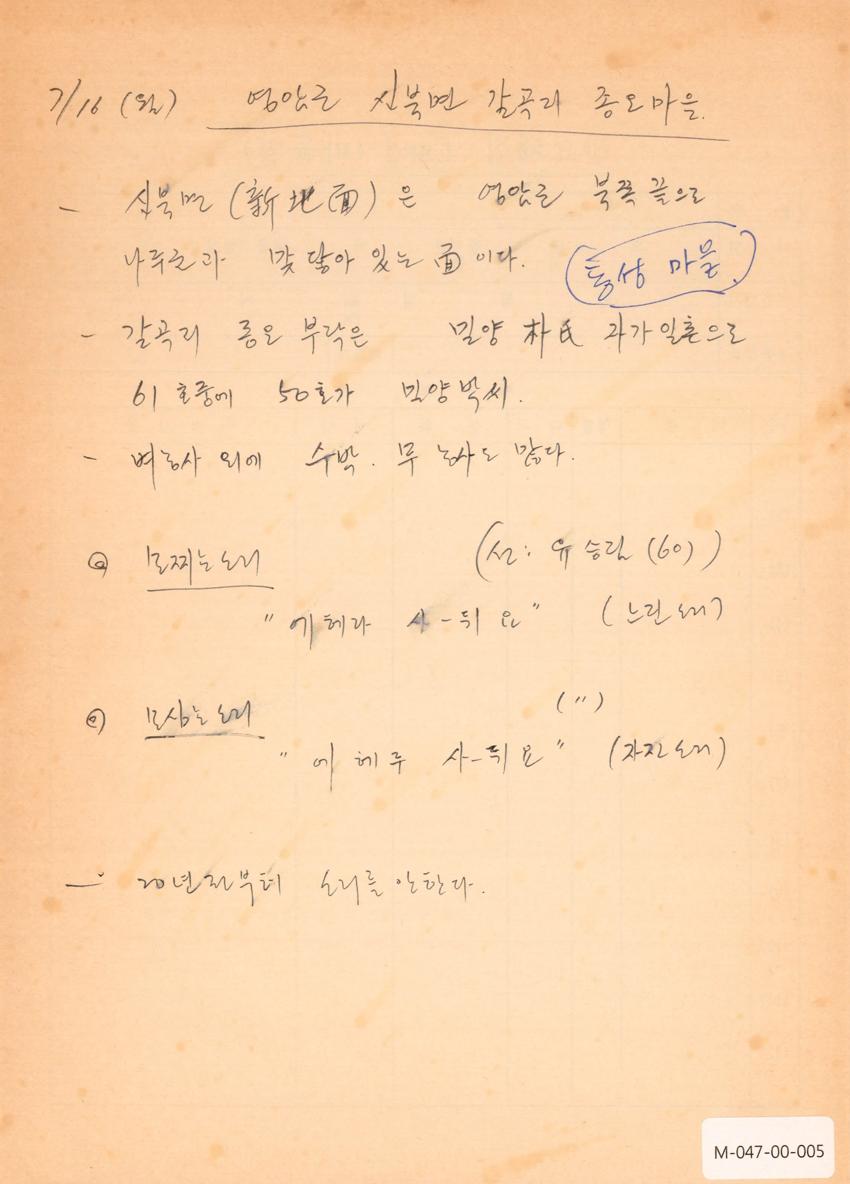 7/16 (월) 영암군 신북면 갈곡리 종오마을.
- 신북면 (新北面)은 영암군 북쪽 끝으로
나주군과 맞닿아 있는 面이다.
통상 마을
- 갈곡리 종오 부락은 밀양 朴氏 과가일촌으로
61호중에 50호가 밀양박씨.
- 벼농사 외에 수박. 무 농사도 많다.
모찌는소리 (선: 유승림 (60))
"에헤라 사-뒤요" (느린소리)
모심는소리 (")
"에헤루 사-뒤요" (자진소리)
- 20년전부터 소리를 안한다.
M-047-00-005